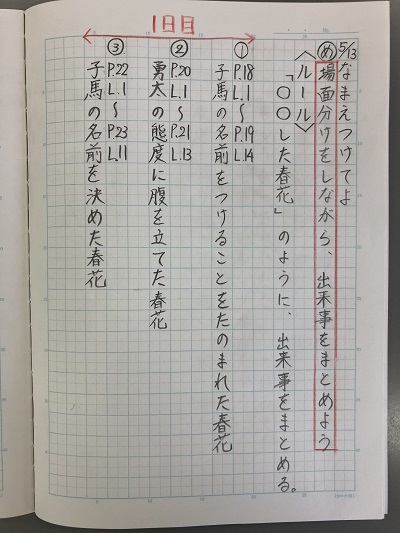 1日目
5/13 なまえつけてよ
め 場面分けをしながら、出来事をまとめよう
〈ルール〉
「○○した春花」のように、出来事をまとめる。
① P.18 L.1〜P.19 L.14
子馬の名前をつけることをたのまれた春花
② P.20 L.1〜P.21 L.13
勇太の態度に腹を立てた春花
③ P.22 L.1〜P.23 L.11
子馬の名前を決めた春花